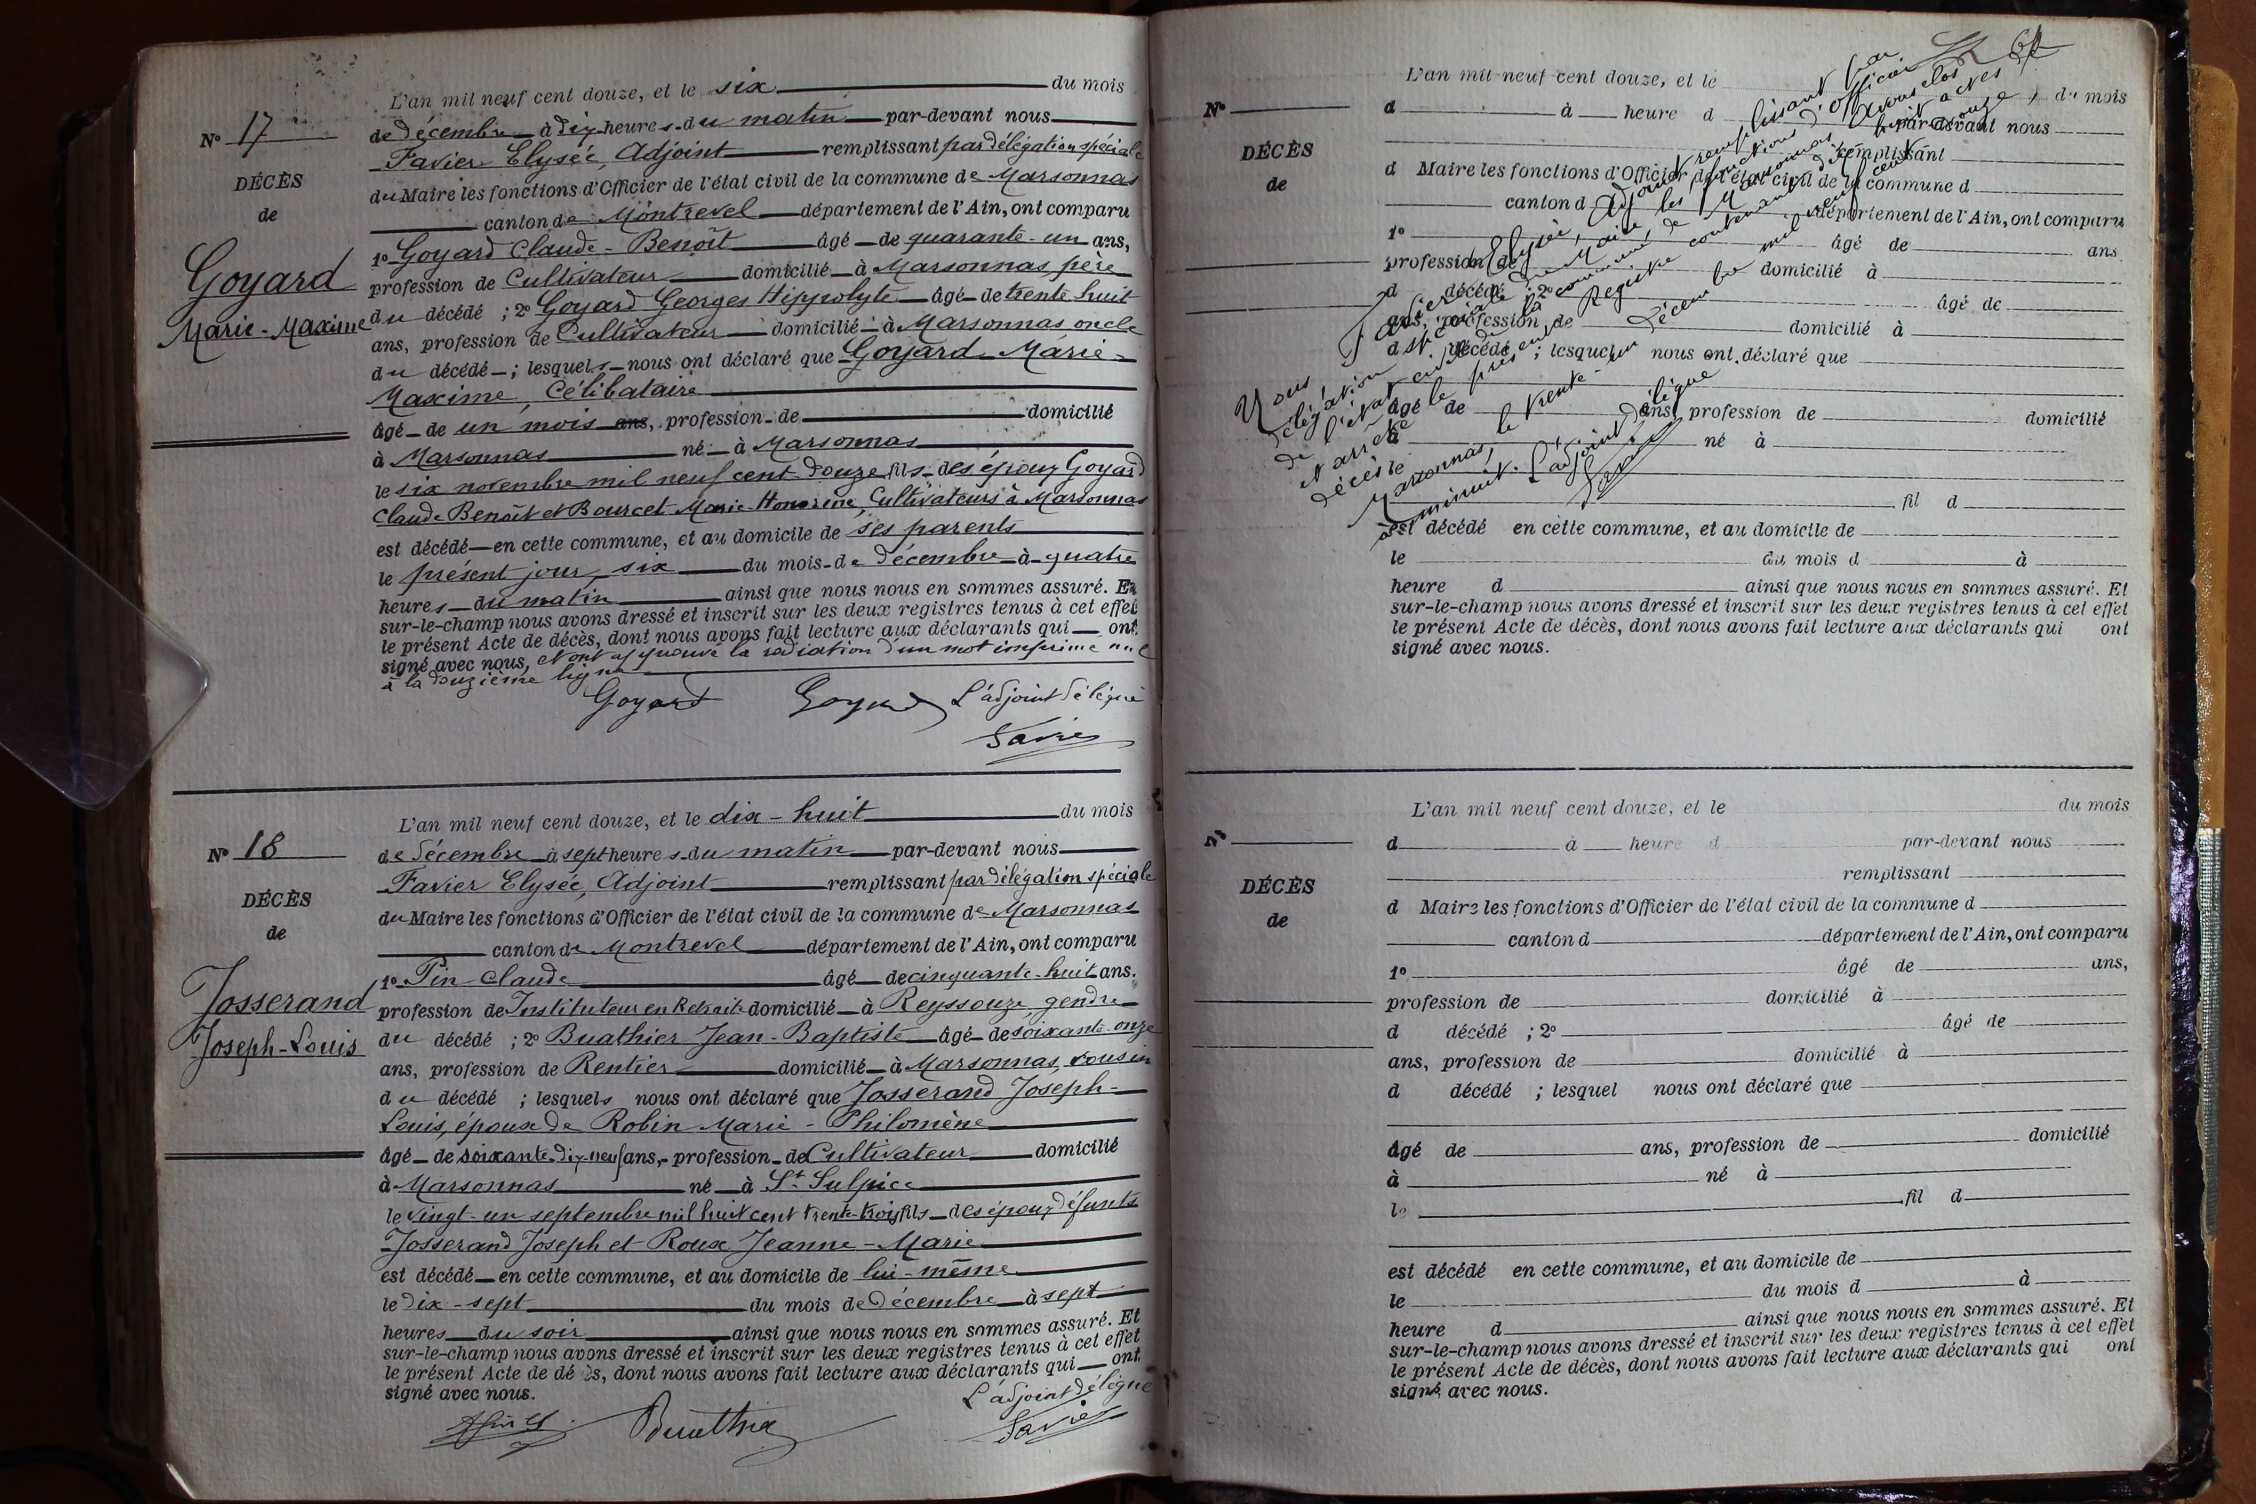 N° 17
DÉCÈS
de
Goyard
Marie-Maxime
L'an mil neuf cent douze, et le six du mois
de Décembre à dix heures du matin par-devant nous
Favier Elysée, Adjoint remplissant par délégation spéciale
du Maire les fonctions d'Officier de l'état civil de la commune de Marsonnas
canton de Montrevel département de l'Ain, ont comparu
1° Goyard Claude-Benoît âgé de quarante-un ans,
profession de Cultivateur domicilié à Marsonnas père
du décédé ; 2° Goyard Georges Hippolyte âgé de trente huit
ans, profession de Cultivateur domicilié à Marsonnas oncle
du décédé ; lesquels nous ont déclaré que Goyard Marie-
Maxime, Célibataire
âgé de un mois ans, profession de domicilié
à Marsonnas né à Marsonnas
le six novembre mil neuf cent douze fils des époux Goyard
Claude Benoît et Bourcet Marie-Honorine, Cultivateurs à Marsonnas
est décédé en cette commune, et au domicile de ses parents
le présent jour, six du mois de décembre à quatre
heures du matin ainsi que nous nous en sommes assuré. Et
sur-le-champ nous avons dressé et inscrit sur les deux registres tenus à cet effet
le présent Acte de décès, dont nous avons fait lecture aux déclarants qui ont
signé avec nous, et ont approuvé la radiation d'un mot imprimé nul
à la douzième ligne
Goyard Goyard L'adjoint délégué
Favier
N° 18
DÉCÈS
de
Josserand
Joseph-Louis
L'an mil neuf cent douze, et le dix-huit du mois
de Décembre à sept heures du matin par-devant nous
Favier Elysée, Adjoint remplissant par délégation spéciale
du Maire les fonctions d'Officier de l'état civil de la commune de Marsonnas
canton de Montrevel département de l'Ain, ont comparu
1° Pin Claude âgé de cinquante-huit ans.
profession de Instituteur en Retraite domicilié à Reyssouze, gendre
du décédé ; 2° Buathier Jean-Baptiste âgé de soixante-onze
ans, profession de Rentier domicilié à Marsonnas, cousin
du décédé ; lesquels nous ont déclaré que Josserand Joseph-
Louis, époux de Robin Marie-Philomène
âgé de soixante-dix-neuf ans, profession de Cultivateur domicilié
à Marsonnas né à St Sulpice
le vingt-un septembre mil huit cent trente-trois fils des époux défunts
Josserand Joseph et Roux Jeanne-Marie
est décédé en cette commune, et au domicile de lui-même
le dix-sept du mois de Décembre à sept
heures du soir ainsi que nous nous en sommes assuré. Et
sur-le-champ nous avons dressé et inscrit sur les deux registres tenus à cet effet
le présent Acte de décès, dont nous avons fait lecture aux déclarants qui ont
signé avec nous.
L'adjoint délégué
Buathier Favier
N°
DÉCÈS
de
L'an mil neuf cent douze, et le du mois
d à heure d par-devant nous
remplissant
d Maire les fonctions d'Officier de l'état civil de la commune d
canton d département de l'Ain, ont comparu
1° âgé de ans
profession de domicilié à
d décédé ; 2° âgé de
ans, profession de domicilié à
d décédé ; lesquel nous ont déclaré que
âgé de ans, profession de domicilié
à né à
le fil d
est décédé en cette commune, et au domicile de
le du mois d à
heure d ainsi que nous nous en sommes assuré. Et
sur-le-champ nous avons dressé et inscrit sur les deux registres tenus à cet effet
le présent Acte de décès, dont nous avons fait lecture aux déclarants qui ont
signé avec nous.
Nous Favier Elysée, Adjoint remplissant par
délégation spéciale du Maire les fonctions d'Officier
de l'état civil de la commune de Marsonnas avons clos
et arrêté le présent Registre contenant dix huit actes
décès le trente-un Décembre mil neuf cent douze,
à minuit.
Marsonnas,
L'adjoint délégué
Favier
N°
DÉCÈS
de
L'an mil neuf cent douze, et le du mois
d à heure d par-devant nous
remplissant
d Maire les fonctions d'Officier de l'état civil de la commune d
canton d département de l'Ain, ont comparu
1° âgé de ans,
profession de domicilié à
d décédé ; 2° âgé de
ans, profession de domicilié à
d décédé ; lesquel nous ont déclaré que
âgé de ans, profession de domicilié
à né à
le fil d
est décédé en cette commune, et au domicile de
le du mois d à
heure d ainsi que nous nous en sommes assuré. Et
sur-le-champ nous avons dressé et inscrit sur les deux registres tenus à cet effet
le présent Acte de décès, dont nous avons fait lecture aux déclarants qui ont
signé avec nous.